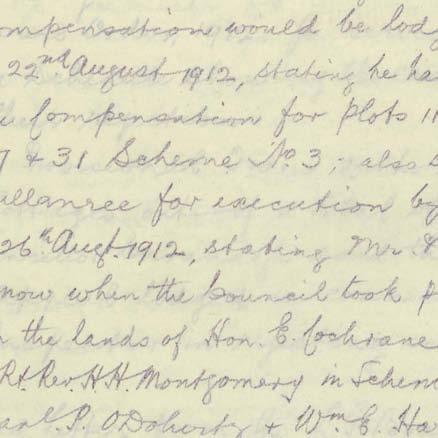 ompensation would be lodg
22nd August 1912, stating he ha
Compensation for Plots 11
7 & 31 Scheme No. 3; also
ullanree for execution by
26th Augt. 1912, stating Mr.
now when the Council took p
the lands of Hon. E. Cochrane
Rt. Rev. H. H. Montgomery in Schem
P. O'Doherty & Wm. E. Ha